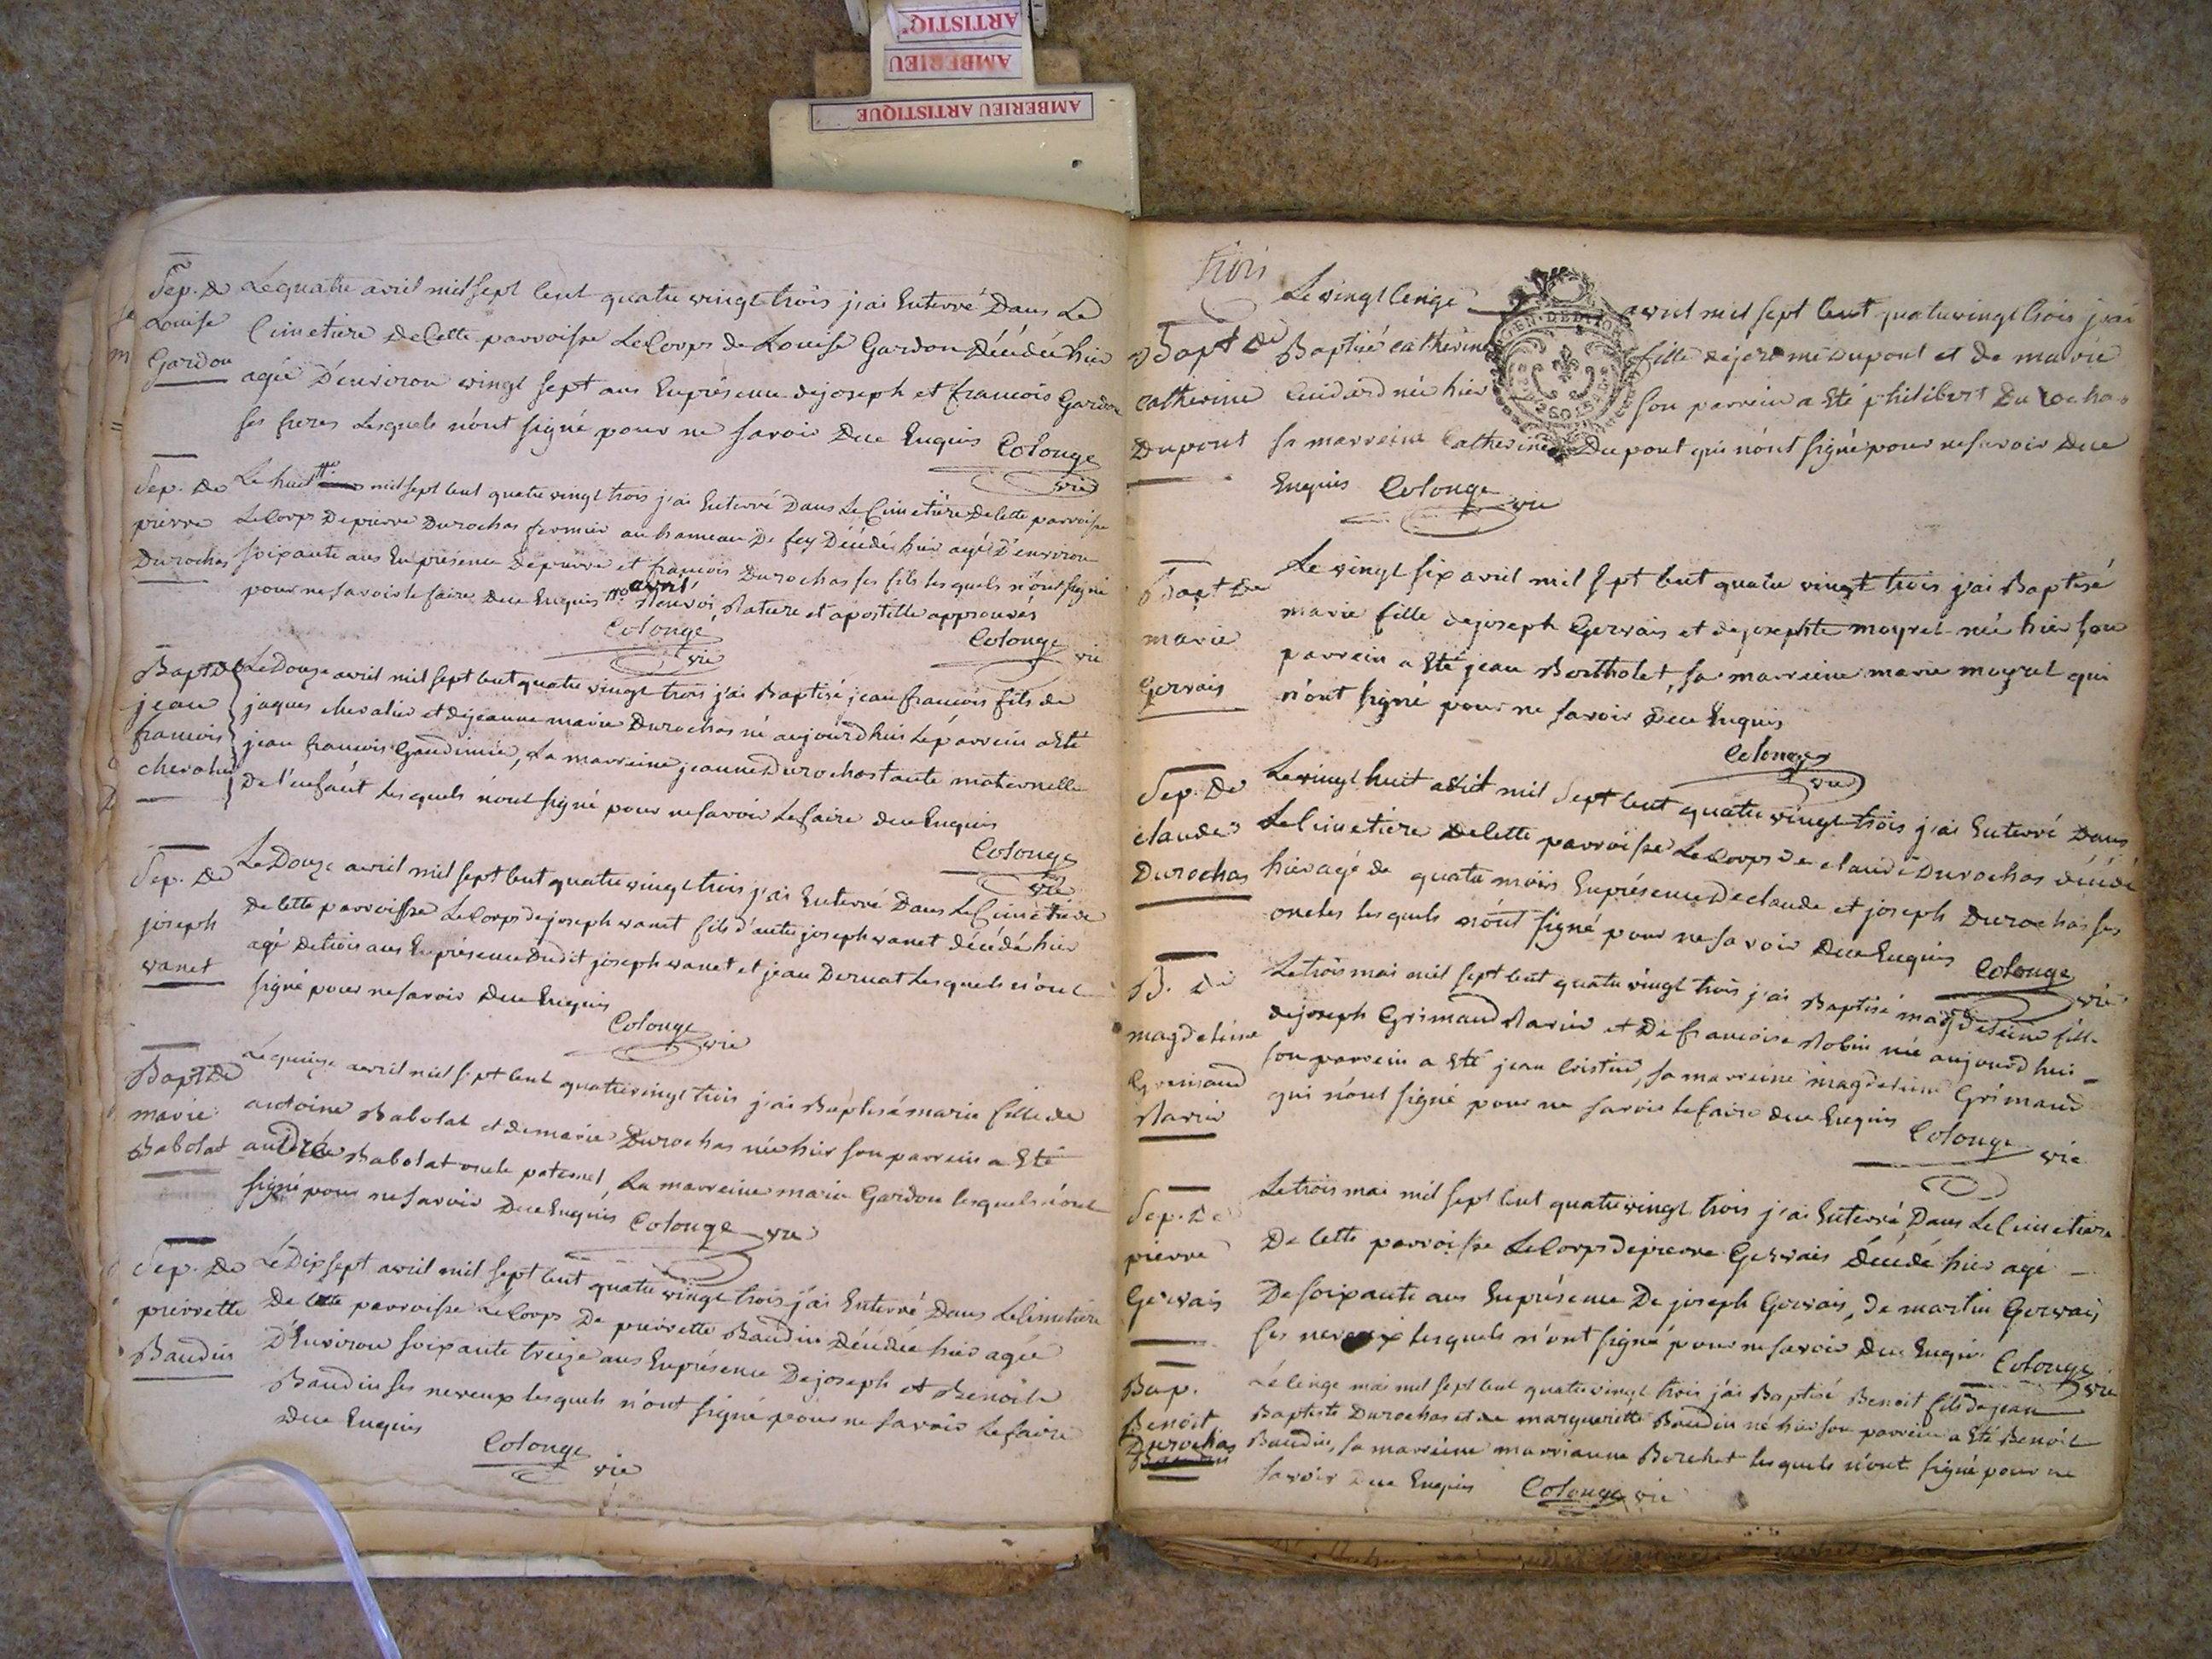 ARTISTIQ
AMBERIEU
AMBERIEU ARTISTIQUE
Sep. De
Louise
Gardon
Le quatre avril mil sept cent quatre vingt trois j'ai Enterré Dans Le
Cimetiere De Cette parroisse Le Corps de Louise Gardon Décédée hier
agée D'environ vingt sept ans En présence de joseph et francois Gardon
ses freres Lesquels n'ont signé pour ne savoir Due Enquis Colonge
vic
Sep. De
pierre
Durochas
Le huit mil sept cent quatre vingt trois j'ai Enterré Dans Le Cimetiere De Cette parroisse
Le Corps De pierre Durochas fermier au hameau De fey Décédé hier agé D'environ
soixante ans En présence De pierre et francois Durochas ses fils lesquels n'ont signé
pour ne savoir le faire Due Enquis avril Renvoi Rature et apostille approuvés
Colonge vic
Colonge vic
Bapt De
jean
francois
chevalier
Le Douze avril mil sept cent quatre vingt trois j'ai Baptisé jean francois fils de
jaques chevalier et de jeanne marie Durochas né aujourd'hui Le parrein a Eté
jean francois Gaudimié, La marreine jeanne Durochas tante maternelle
De l'enfant Lesquels n'ont signé pour ne savoir Le faire due Enquis
Colonge
vic
Sep. De
joseph
vanet
Le Douze avril mil sept cent quatre vingt trois j'ai Enterré Dans Le Cimetiere
De Cette parroisse Le Corps de joseph vanet fils d'autre joseph vanet décédé hier
agé De trois ans En présence Dudit joseph vanet et jean Dernat Lesquels n'ont
signé pour ne savoir Due Enquis
Colonge vic
Bapt De
marie
Rabolat
Le quinze avril mil sept cent quatre vingt trois j'ai Baptisé marie fille de
antoine Rabolat et de marie Durochas née hier son parrein a Eté
andré Rabolat oncle paternel, La marreine marie Gardon lesquels n'ont
signé pour ne savoir Due Enquis Colonge vic
Sep. De
pierrette
Baudin
Le Dix sept avril mil sept cent quatre vingt trois j'ai Enterré Dans Le Cimetiere
De Cette parroisse Le Corps De pierrette Baudin Décédée hier agée
D'Environ soixante treize ans En présence De joseph et Benoit
Baudin ses neveux lesquels n'ont signé pour ne savoir Le faire
Due Enquis
Colonge vic
trois
Bapt De
Catherine
Dupont
Le vingt cinq avril mil sept cent quatre vingt trois j'ai
Baptisé Catherine fille de jerome Dupont et de marie
Cuidard née hier son parrein a Eté philibert Durochas
sa marreine Catherine Dupont qui n'ont signé pour ne savoir Due
Enquis Colonge vic
Bapt De
marie
Gervais
Le vingt six avril mil sept cent quatre vingt trois j'ai Baptisé
marie fille de joseph Gervais et de josephte mayret née hier son
parrein a Eté jean Bortholet, sa marreine marie mayret qui
n'ont signé pour ne savoir Due Enquis
Colonge
vic
Sep. De
claude
Durochas
Le vingt huit avril mil sept cent quatre vingt trois j'ai Enterré Dans
Le Cimetiere De Cette parroisse Le Corps de claude Durochas décédé
hier agé de quatre mois En présence De claude et joseph Durochas ses
oncles lesquels n'ont signé pour ne savoir Due Enquis Colonge
vic
B. De
magdeleine
Grimaud
Ravier
Le trois mai mil sept cent quatre vingt trois j'ai Baptisé magdeleine fille
de joseph Grimaud Ravier et De francoise Robin née aujourd'hui
son parrein a Eté jean Cristin, sa marreine magdeleine Grimaud
qui n'ont signé pour ne savoir le faire due Enquis Colonge vic
Sep. De
pierre
Gervais
Le trois mai mil sept cent quatre vingt trois j'ai Enterré Dans Le Cimetiere
De Cette parroisse Le Corps de pierre Gervais décédé hier agé
De soixante ans En présence De joseph Gervais, de martin Gervais
ses neveux lesquels n'ont signé pour ne savoir Due Enquis Colonge
vic
Bap.
Benoit
Durochas
Le Cinq mai mil sept cent quatre vingt trois j'ai Baptisé Benoit fils de jean
Baptiste Durochas et de margueritte Baudin né hier son parrein a Eté Benoit
Baudin, sa marreine marrianne Berchet lesquels n'ont signé pour ne
savoir Due Enquis Colonge vic